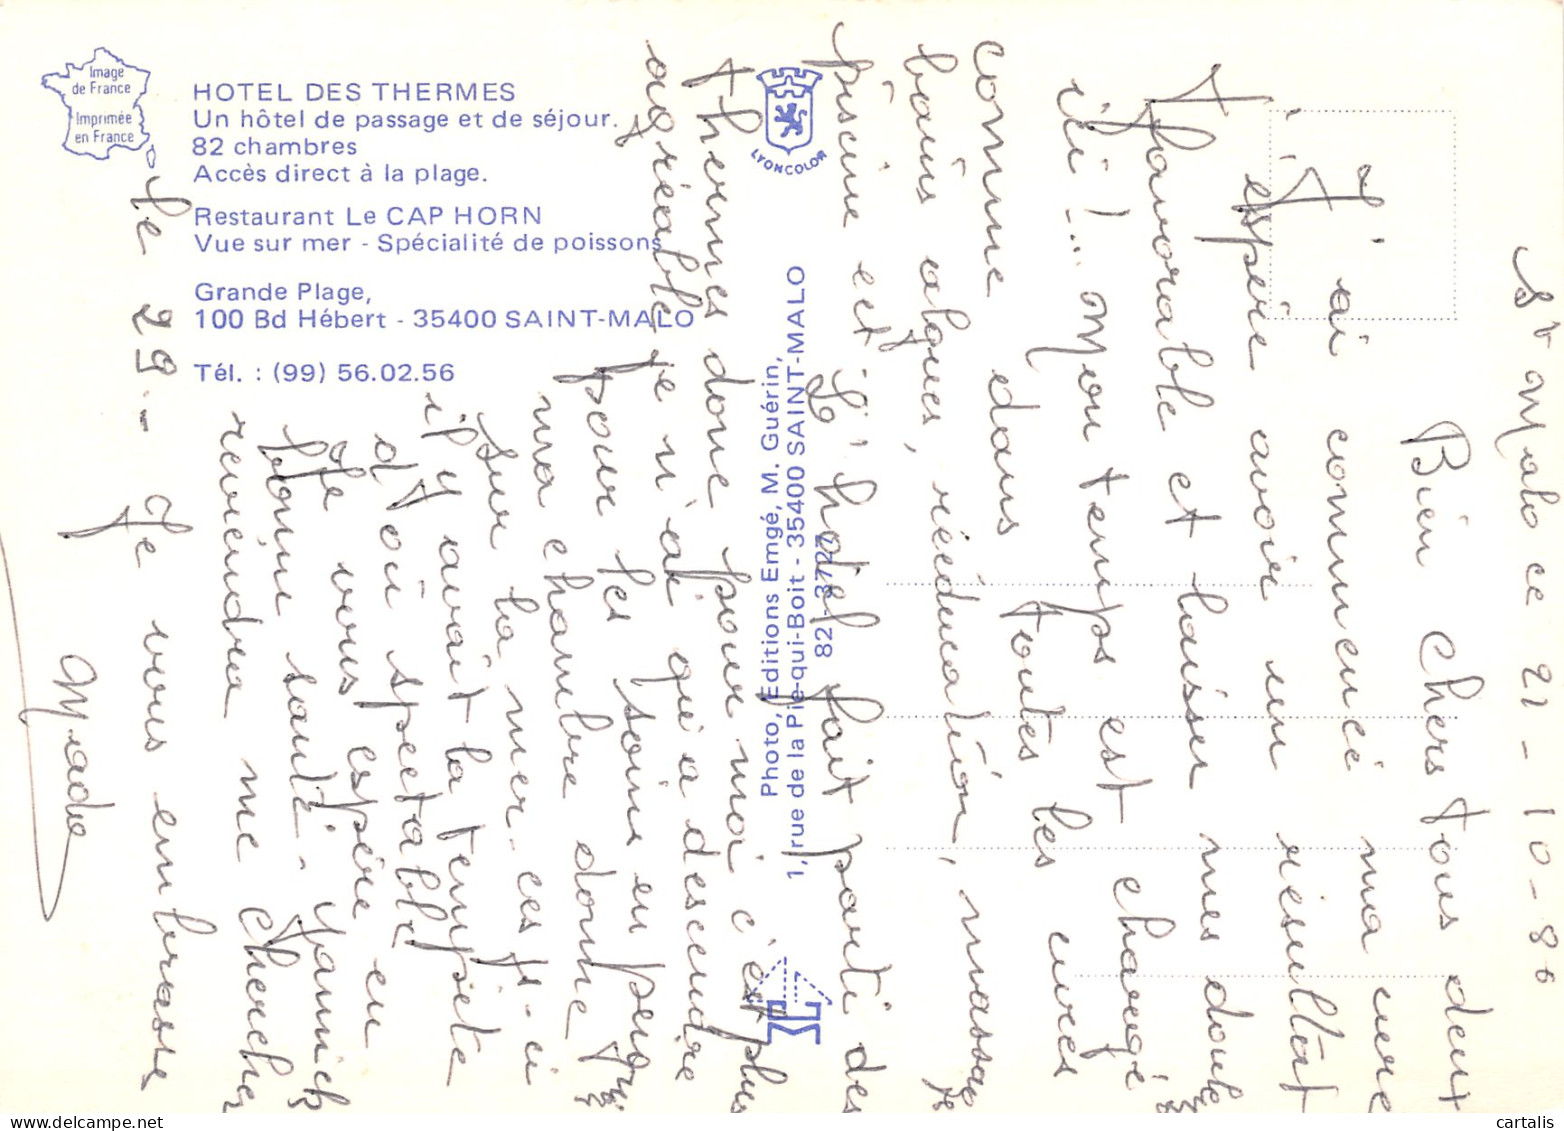 Image
de France
Imprimée
en France
HOTEL DES THERMES
Un hôtel de passage et de séjour.
82 chambres
Accès direct à la plage.
Restaurant Le CAP HORN
Vue sur mer - Spécialité de poissons
Grande Plage,
100 Bd Hébert - 35400 SAINT-MALO
Tél. : (99) 56.02.56
LYONCOLOR
Photo, Editions Emgé, M. Guérin,
1, rue de la Pie-qui-Boit - 35400 SAINT-MALO
St Malo ce 22-10-86
Bien Chers tous deux
J'ai commencé ma cure
j'espère avoir un résultat
favorable et laisser mes douleurs
ici !... Mon temps est chargé
comme dans toutes les cures
bains algues, rééducation, massages
piscine ect L'hotel fait parti des
thermes donc pour moi c'est plus
agréable je n'ai qu'a descendre
pour les soins en peignoir
ma chambre donne
sur la mer. ces jr-ci
il y avait la tempête
d'où spectable
Je vous espère en
bonne santé. Yannick
reviendra me chercher
le 29. Je vous embrasse
Mado
cartalis